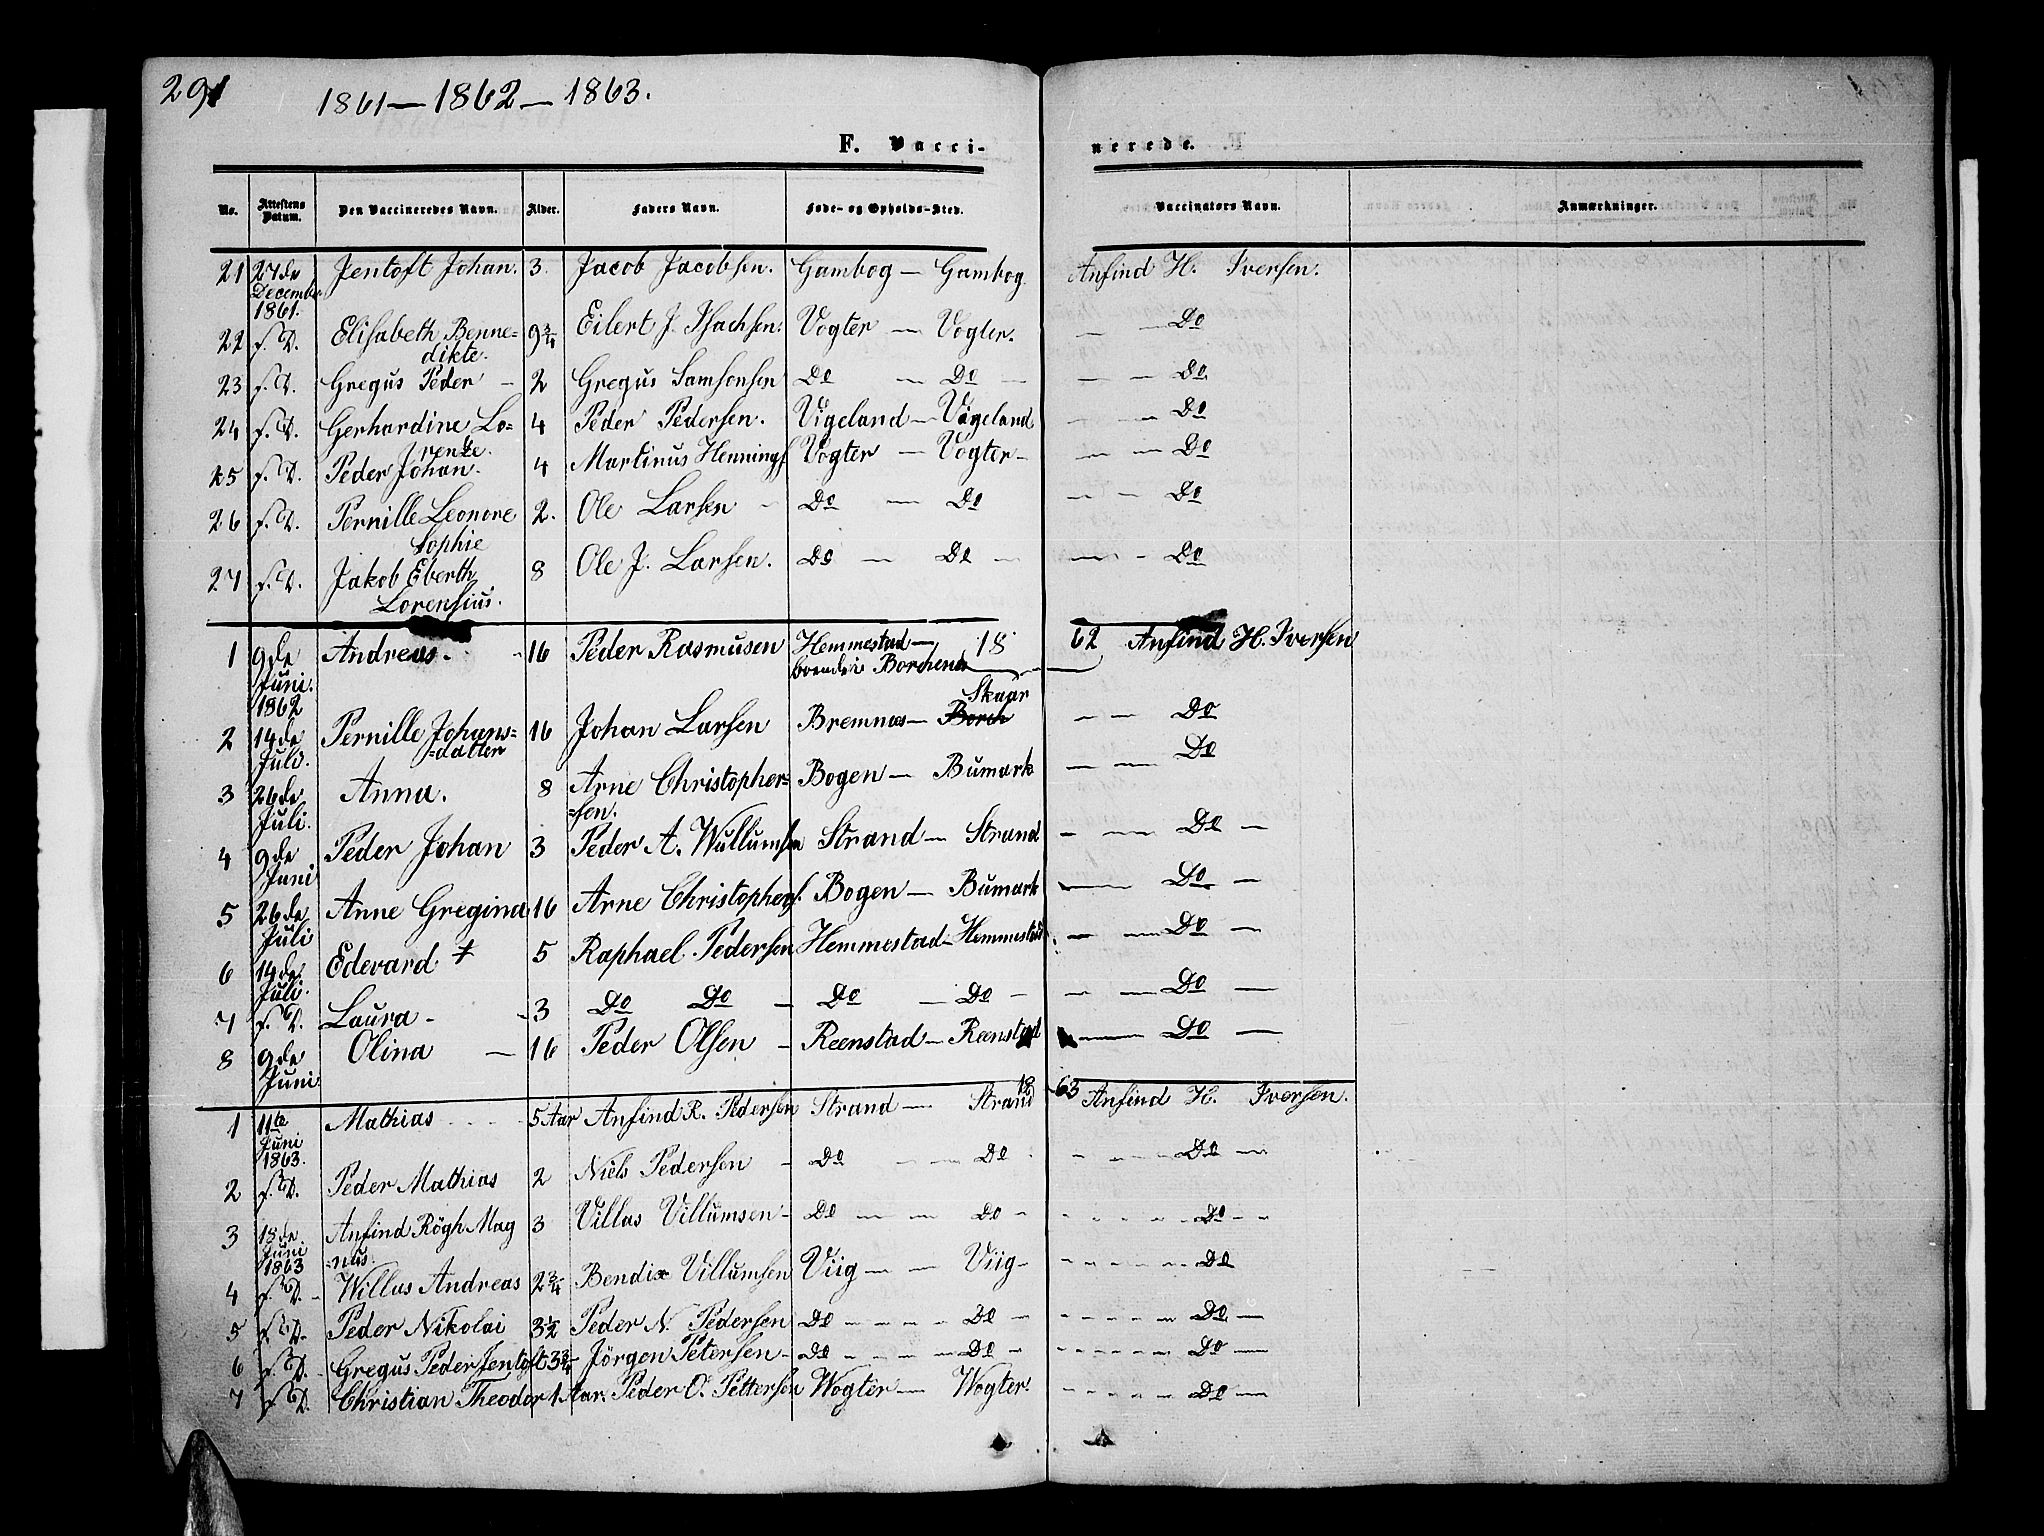 291
1861 — 1862 — 1863.
F. Vacci-nerede.
No. Attestens Datum. Den Vaccineredes Navn. Alder. Faders Navn. Føde- og Opholds-Sted. Vaccinators Navn. Anmærkninger.
21 27de December 1861. Jentoft Johan. 3. Jacob Jacobsen. Gambog — Gambog Anfind H. Iversen.
22 s. D. Elisabeth Benne=dikte. 9 3/4 Eilert J. Isachsen. Vogter — Vogter. — — Do
23 s. D. Gregus Peder — 2 Gregus Samsonsen Do — Do — — — Do
24 s. D. Gerhardine Lo=rentze. 4 Peder Pedersen. Vigeland — Vigeland — — Do
25 s. D. Peder Johan. 4 Martinus Hennings. Vogter — Vogter — — — Do
26 s. D. Pernille Leonore Sophie 2. Ole Larsen — Do — Do — — Do
27 s. D. Jakob Eberth Lorensius. 8 Ole J. Larsen. Do — Do — — — Do
1 9de Juni. 1862 Andreas. 16 Peder Rasmusen Hemmestad — boende i Borchene 18 62 Anfind H. Iversen
2 14de Juli. Pernille Johans=datter 16 Johan Larsen Bremnæs — Borch Skaar — — Do
3 26de Juli. Anna. 8 Arne Christopher=sen. Bogen — Bumark — — Do
4 9de Juni Peder Johan 3 Peder A. Wullumsen Strand — Strand — — Do —
5 26de Juli Anne Gregina 16 Arne Christophers. Bogen — Bumark — — Do —
6 14de Juli. Edevard † 5 Raphael Pedersen Hemmestad — Hemmestad — — Do —
7 s. D. Laura — 3 Do Do — Do — Do — — — Do —
8 9de Juni Olina — 16 Peder Olsen — Reenstad — Reenstad — Do —
18 63
1 11te Juni 1863. Mathias 5 Aar Anfind R. Pedersen Strand — Strand Anfind H. Iversen.
2 s. D. Peder Mathias 2 Niels Pedersen — Do — — Do - - - - Do —
3 18de Juni 1863 Anfind Rögh Mag=nus. 3 Villas Villumsen — Do — — Do - - - - - Do - -
4 s. D. — Willas Andreas 2 3/4 Bendix Villumsen Viig — — Viig — - - - - - Do
5 s. D. Peder Nikolai 3 1/2 Peder N. Pedersen Do - - - - Do — - - - - - Do —
6 s. D. Gregus Peder Jentoft 3 3/4 Jörgen Petersen — Do - - - - Do — - - - - - Do —
7 s. D. Christian Theodor 1 Aar. Peder O. Pettersen Wogter — Wogter. - - - - - Do —